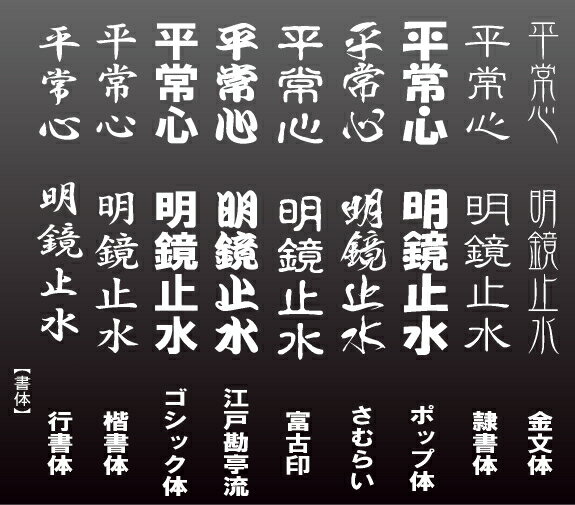 平常心 明鏡止水 金文体
平常心 明鏡止水 隷書体
平常心 明鏡止水 ポップ体
平常心 明鏡止水 さむらい
平常心 明鏡止水 富古印
平常心 明鏡止水 江戸勘亭流
平常心 明鏡止水 ゴシック体
平常心 明鏡止水 楷書体
平常心 明鏡止水 行書体
【書体】